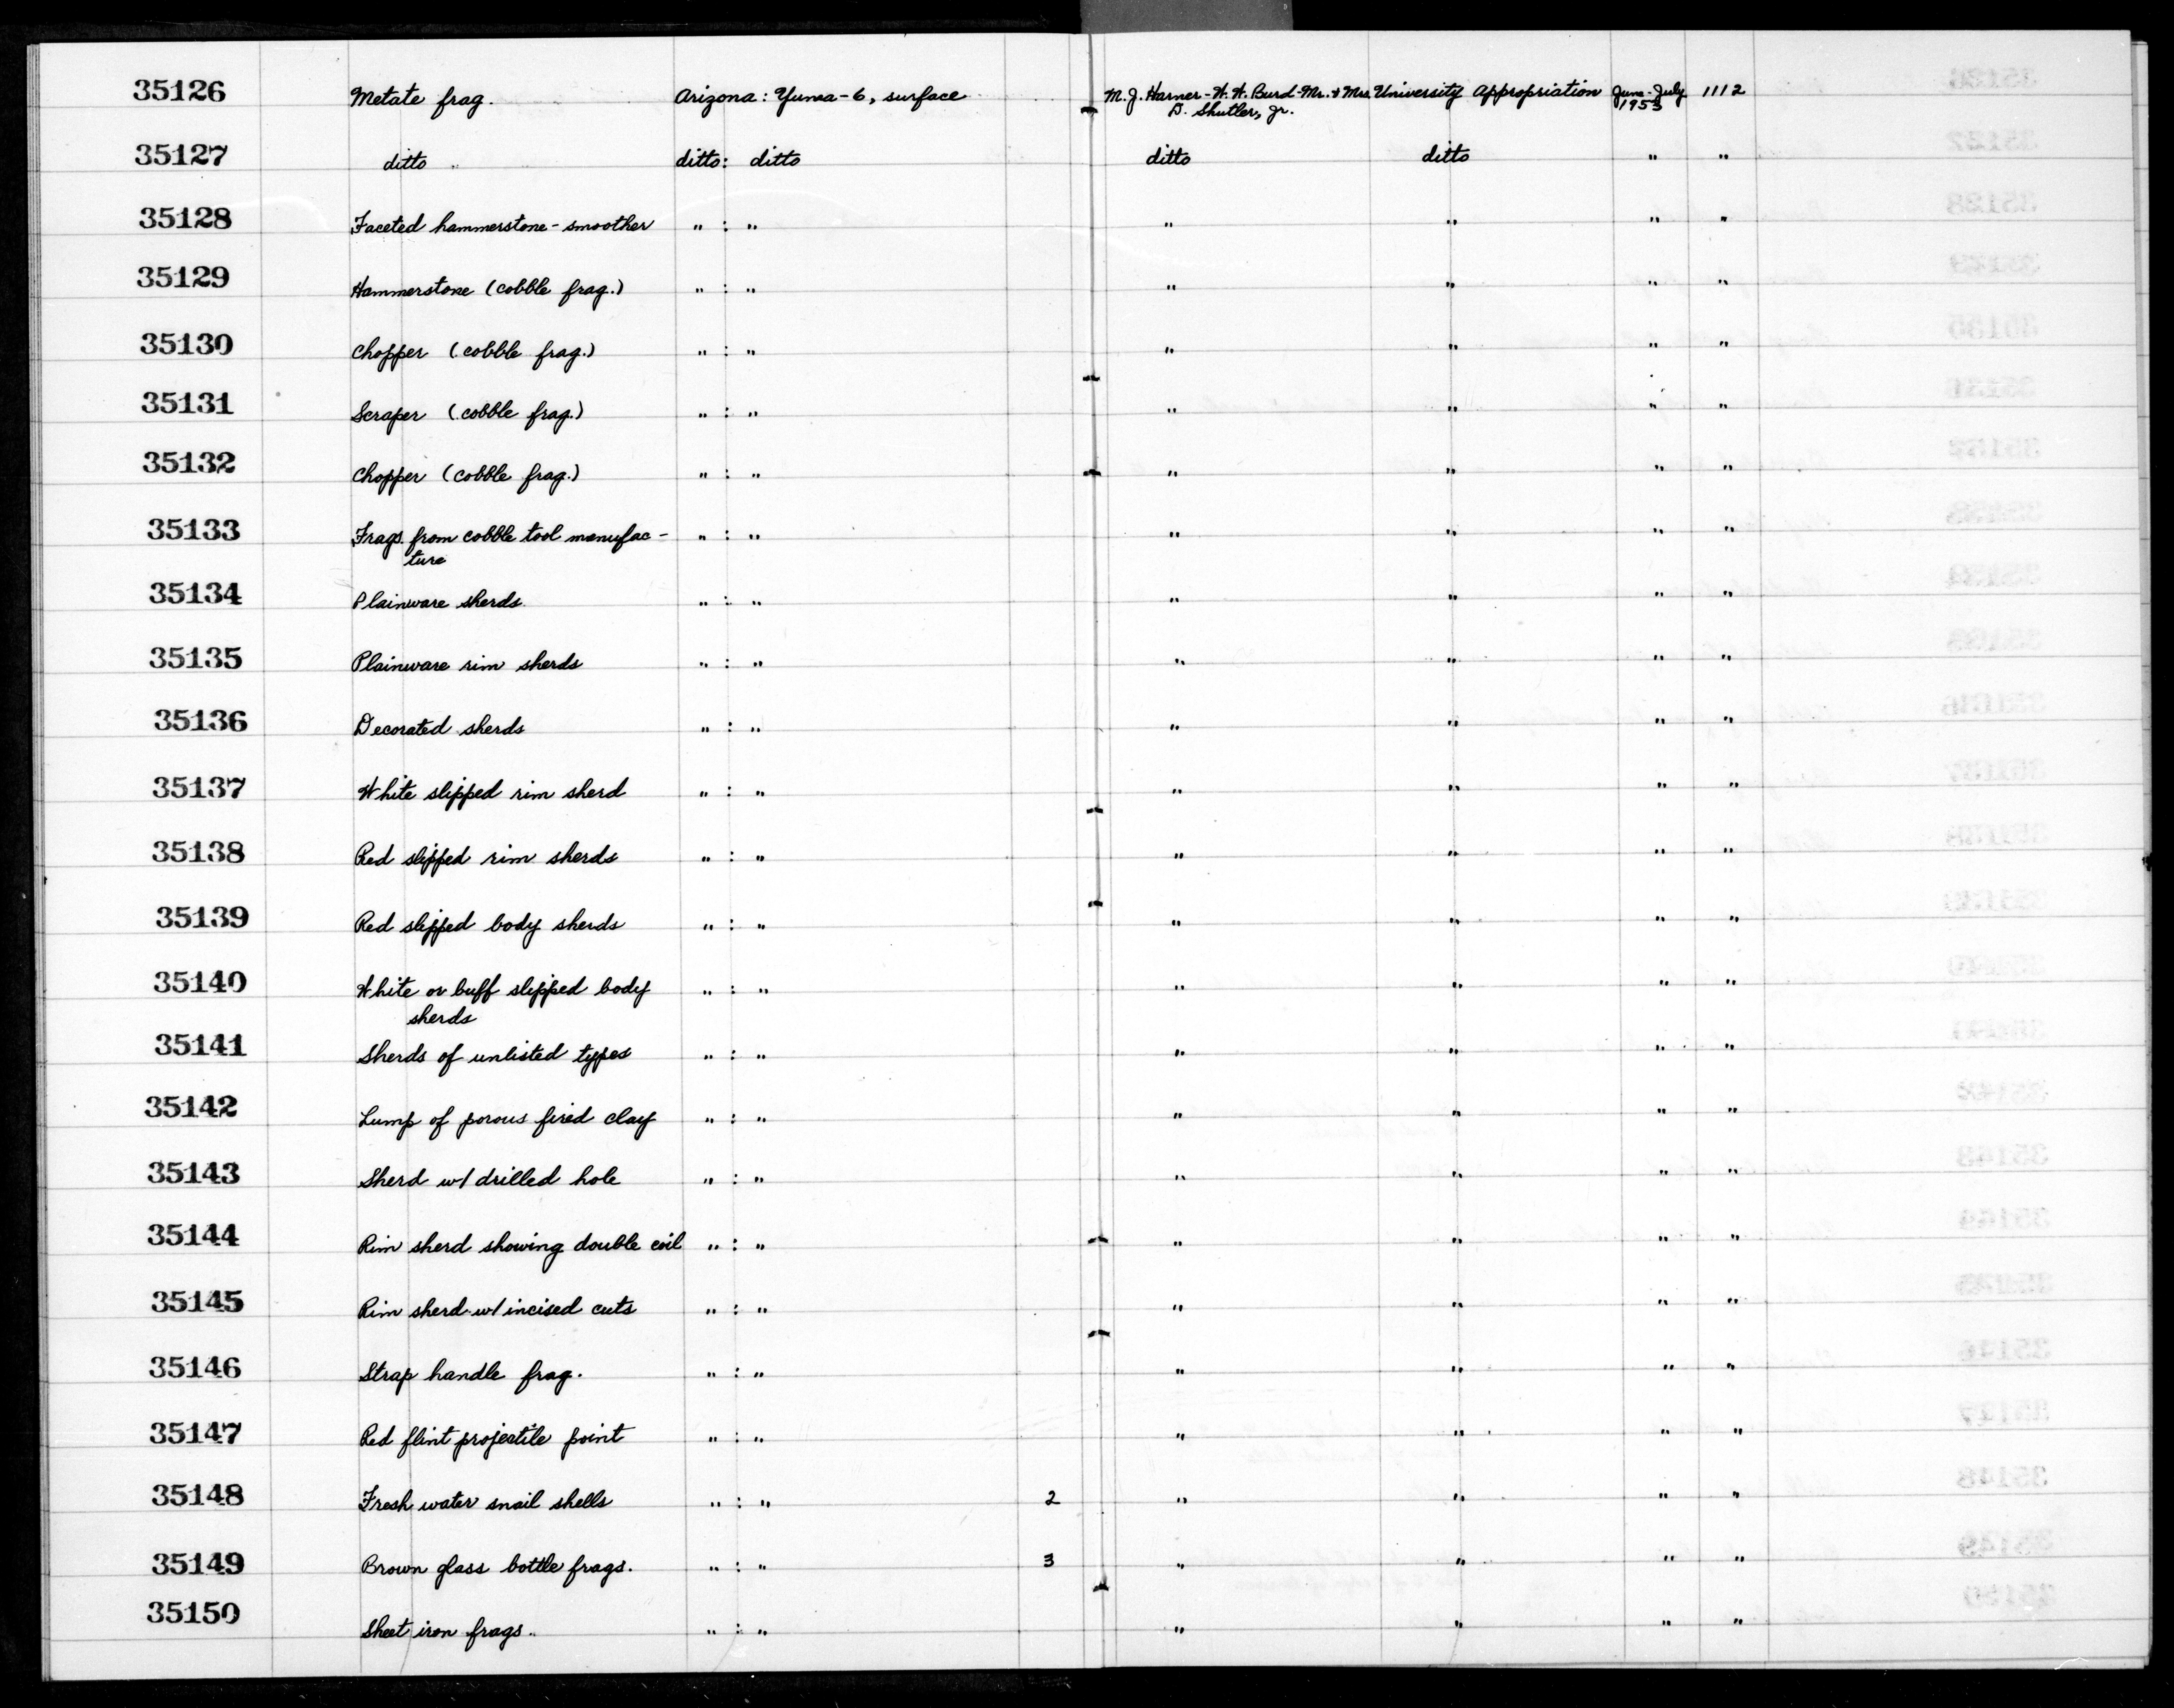 35126 Metate frag. Arizona: Yuma-6, surface M. J. Harner-W. W. Burd-Mr. & Mrs. University Appropriation June-July 1112
D. Shutler, Jr. 1953
35127 ditto ditto: ditto ditto ditto " "
35128 Faceted hammerstone-smoother " : " " " " "
35129 Hammerstone (cobble frag.) " : " " " " "
35130 Chopper (cobble frag.) " : " " " " "
35131 Scraper (cobble frag.) " : " " " " "
35132 Chopper (cobble frag.) " : " " " " "
35133 Frags. from cobble tool manufac- " : " " " " "
ture
35134 Plainware sherds " : " " " " "
35135 Plainware rim sherds " : " " " " "
35136 Decorated sherds " : " " " " "
35137 White slipped rim sherd " : " " " " "
35138 Red slipped rim sherds " : " " " " "
35139 Red slipped body sherds " : " " " " "
35140 White or buff slipped body " : " " " " "
sherds
35141 Sherds of unlisted types " : " " " " "
35142 Lump of porous fired clay " : " " " " "
35143 Sherd w/ drilled hole " : " " " " "
35144 Rim sherd showing double coil " : " " " " "
35145 Rim sherd w/ incised cuts " : " " " " "
35146 Strap handle frag. " : " " " " "
35147 Red flint projectile point " : " " " " "
35148 Fresh water snail shells " : " 2 " " " "
35149 Brown glass bottle frags. " : " 3 " " " "
35150 Sheet iron frags. " : " " " " "